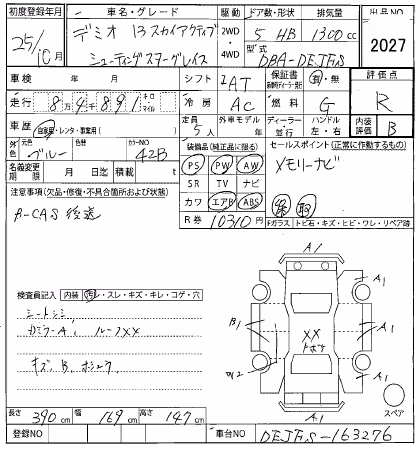 初度登録年月 車名・グレード 駆動 ドア数・形状 排気量 出品NO
25/10月 デミオ 13 スカイアクティブ 2WD・4WD 5 HB 1300cc 2027
シューティングスターグレイス 型式 DBA-DEJFS
車検 年 月 シフト IAT 保証書 有・無 評価点
走行 8万4891 キロ マイル 冷房 AC 燃料 G R
車歴 自家用・レンタ・事業用( ) 定員 5人 外車モデル 年 ディーラー 並行 ハンドル 左・右 内装評価 B
外色 元色 ブルー カラーNO 42B 装備品(純正品に限る) セールスポイント(正常に作動するもの)
名義変更期限 月 日迄 積載 t PS PW AW メモリーナビ
注意事項(欠品・修復・不具合箇所および状態) SR TV ナビ
B-CAS後送 カワ エアB ABS
R券 10310円 保 取
Fガラス トビ石・キズ・ヒビ・ワレ・リペア跡
検査員記入 内装 汚れ・スレ・キズ・キレ・コゲ・穴
シートシミ
カガミラーA、ルーフXX
キズ、B、ホシュウ
A1
A1
B1
XX
A1
A1
スペア
長さ 390cm 幅 169cm 高さ 147cm
登録NO 車台NO DEJFS-163276